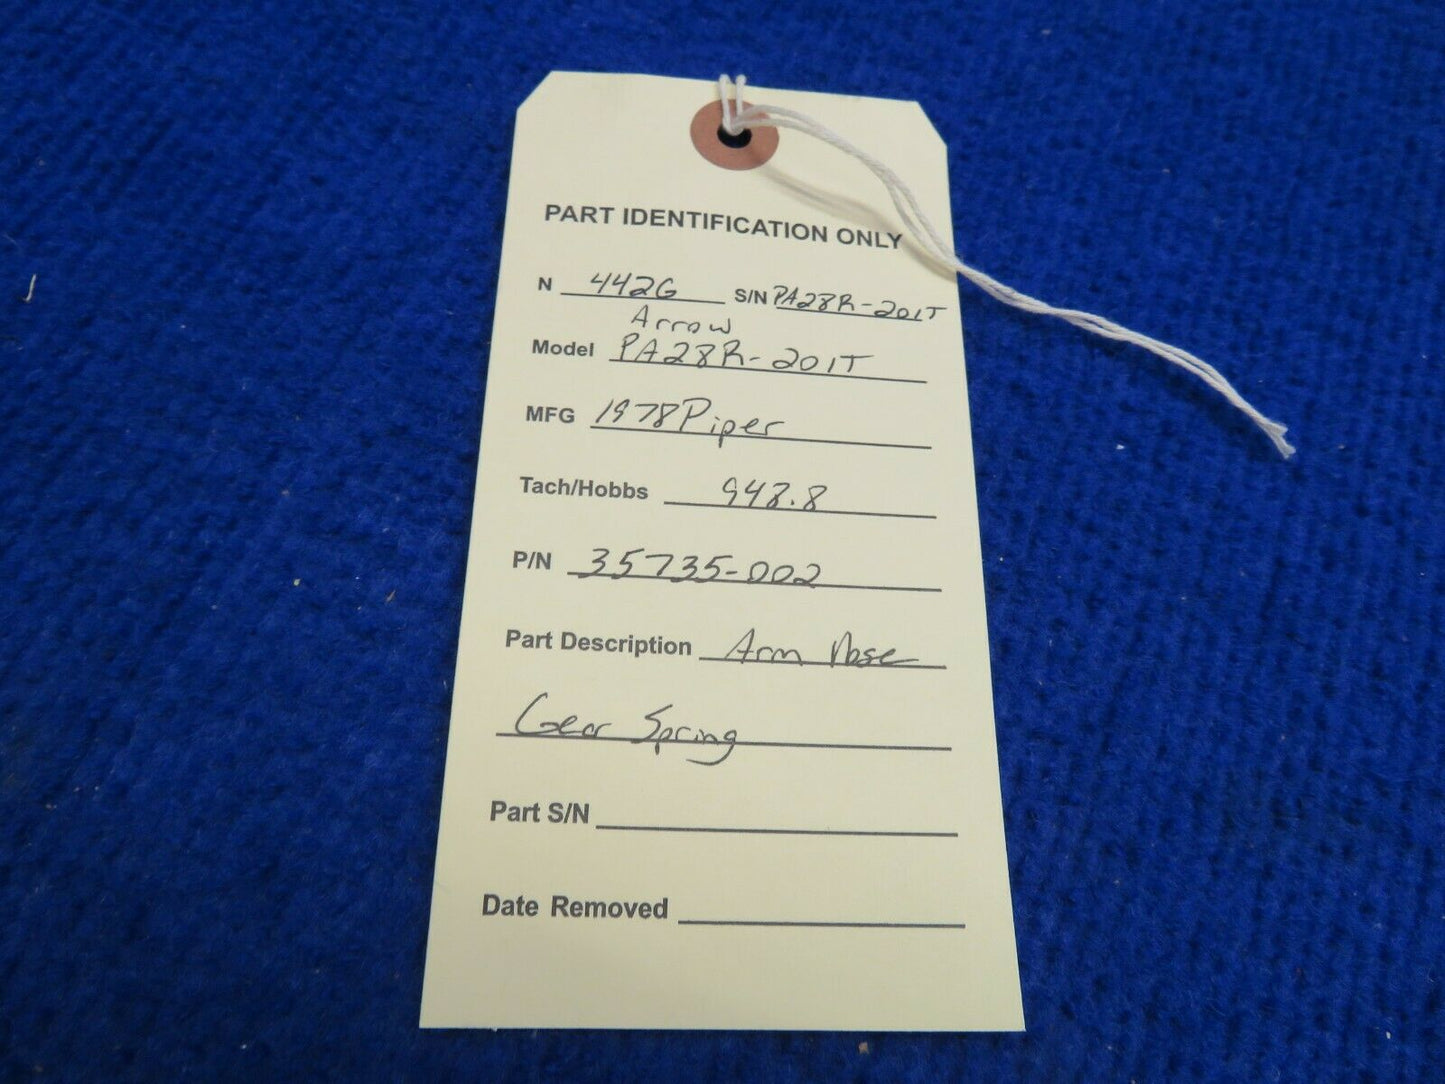 PART IDENTIFICATION ONLY
N 442G S/N PA28R-201T
Arrow
Model PA28R-201T
MFG 1978 Piper
Tach/Hobbs 948.8
P/N 35735-002
Part Description Arm Nose
Gear Spring
Part S/N
Date Removed